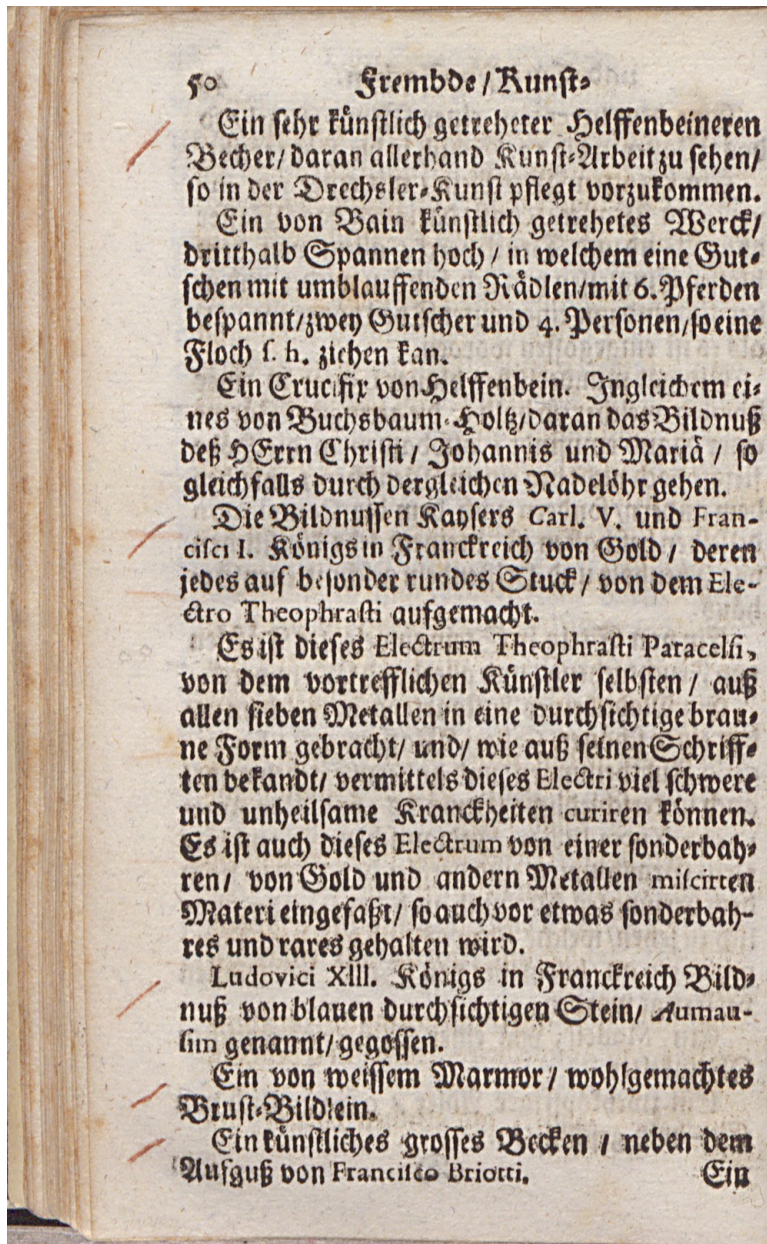 50 Frembde / Kunst-
Ein sehr künstlich getreheter Helffenbeineren
Becher / daran allerhand Kunst-Arbeit zu sehen /
so in der Drechsler-Kunst pflegt vorzukommen.
Ein von Bain künstlich getrehetes Werck /
dritthalb Spannen hoch / in welchem eine Gut-
schen mit umblauffenden Rädlen / mit 6. Pferden
bespannt / zwey Gutscher und 4. Personen / so eine
Floch s. h. ziehen kan.
Ein Crucifix von Helffenbein. Ingleichem ei-
nes von Buchsbaum-Holtz / daran das Bildnuß
deß HErrn Christi / Johannis und Mariä / so
gleichfalls durch dergleichen Nadelöhr gehen.
Die Bildnussen Kaysers Carl. V. und Fran-
cisci I. Königs in Franckreich von Gold / deren
jedes auf besonder rundes Stuck / von dem Ele-
ctro Theophrasti aufgemacht.
Es ist dieses Electrum Theophrasti Paracelsi,
von dem vortrefflichen Künstler selbsten / auß
allen sieben Metallen in eine durchsichtige brau-
ne Form gebracht / und / wie auß seinen Schriff-
ten bekandt / vermittels dieses Electri viel schwere
und unheilsame Kranckheiten curiren können.
Es ist auch dieses Electrum von einer sonderbah-
ren / von Gold und andern Metallen miscirten
Materi eingefaßt / so auch vor etwas sonderbah-
res und rares gehalten wird.
Ludovici XIII. Königs in Franckreich Bild-
nuß von blauen durchsichtigen Stein / Aumau-
sim genannt / gegossen.
Ein von weissem Marmor / wohlgemachtes
Brust-Bildlein.
Ein künstliches grosses Becken / neben dem
Aufguß von Francisco Briotti. Ein